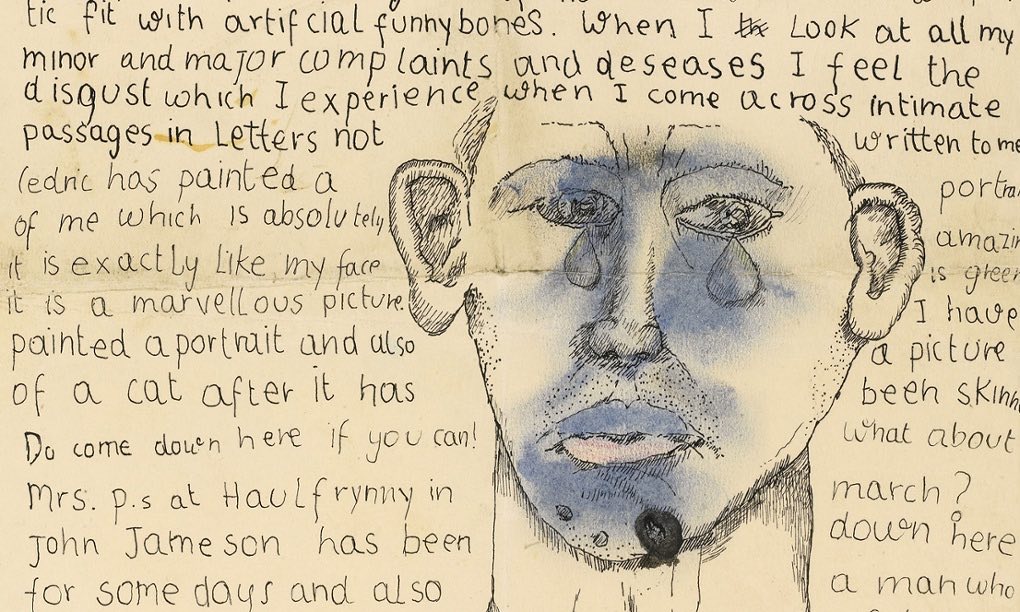 tic fit with artifcial funnybones. When I the Look at all my
minor and major complaints and deseases I feel the
disgust which I experience when I come across intimate
passages in Letters not written to me
Cedric has painted a portrait
of me which is absolutely amazin
it is exactly like my face is green
it is a marvellous picture. I have
painted a portrait and also a picture
of a cat after it has been skinn
Do come down here if you can! what about march?
Mrs. p.s at Haulfrynny in down here
John Jameson has been a man who
for some days and also